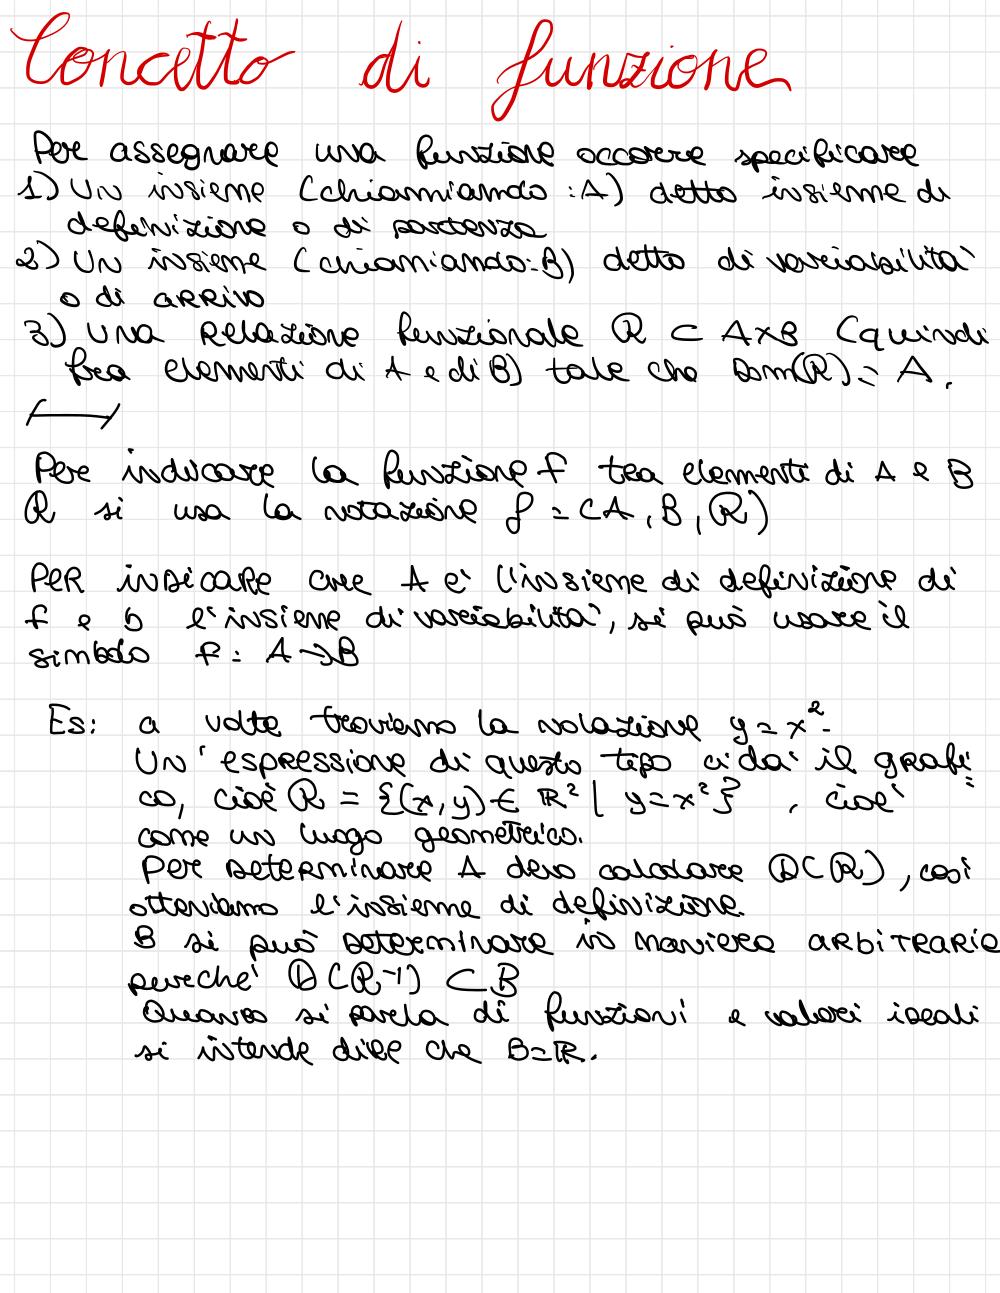 Concetto di funzione
Per assegnare una funzione occorre specificare
1) Un insieme (chiamiamolo: A) detto insieme di
definizione o di partenza
2) Un insieme (chiamiamolo: B) detto di variabilità
o di arrivo
3) Una relazione funzionale R ⊂ A×B (quindi
fra elementi di A e di B) tale che Dom(R) = A.
Per indicare la funzione f tra elementi di A e B
R si usa la notazione f = (A, B, R)
PER indicare che A è l'insieme di definizione di
f e b l'insieme di variabilità, si può usare il
simbolo f: A→B
Es: a volte troviamo la notazione y = x².
Un'espressione di questo tipo ci dà il grafi
co, cioè R = {(x,y) ∈ ℝ² | y=x²}, cioè
come un luogo geometrico.
Per determinare A devo calcolare D(R), così
otteniamo l'insieme di definizione.
B si può determinare in maniera arbitraria
perché D(R⁻¹) ⊂ B
Quando si parla di funzioni e valori
si intende dire che B=ℝ.